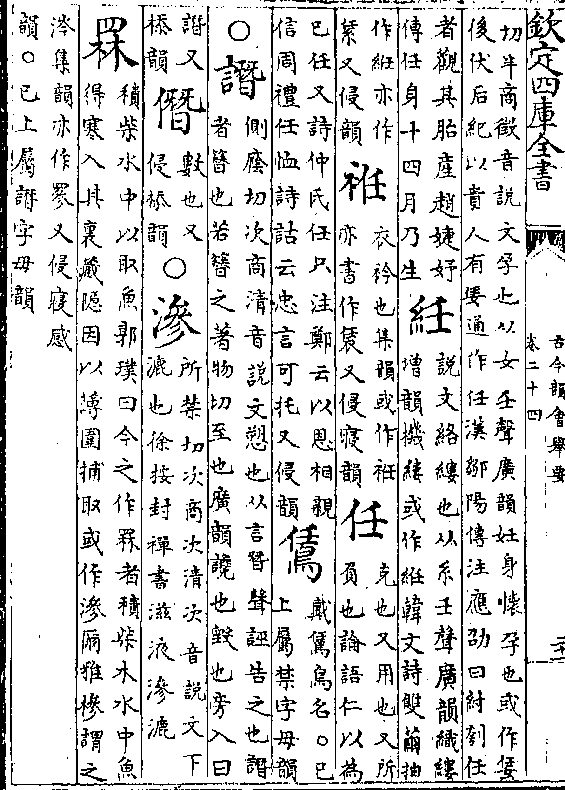 欽定四庫全書
古今韻會舉要
卷二十四
切半商徵音說文孕也从女壬聲廣韻妊身懷孕也或作㚾
後伏后紀以貴人有㚾通作任漢鄒陽傳注應劭曰紂刳任
者觀其胎產趙婕妤
傳任身十四月乃生
紝
說文絡縷也从糸壬聲廣韻織縷
增韻機縷或作絍韓文詩雙繭抽
作絍亦作
䋕又侵韻
衽
衣衿也集韻或作袵
亦書作又侵寢韻
任
克也又用也又所
負也論語仁以為
巳任又詩仲氏任只注鄭云以恩相親
信周禮任恤詩詁云忠言可托又侵韻
鵀
戴鵀鳥名○巳
上屬禁字母韻
○譖
側廕切次商清音說文愬也从言朁聲誣告之也譖
者簪也若簪之著物切至也廣韻讒也毀也旁入曰
譖又
㮇韻
僭
數也又
侵㮇韻
○滲
所禁切次商次清次音說文下
漉也徐按封禪書滋液滲漉
罧
積柴水中以取魚郭璞曰今之作罧者積柴木水中魚
得寒入其裏藏隱因以薄圍捕取或作滲爾雅槮謂之
涔集韻亦作又侵寢感
韻○巳上屬譖字母韻